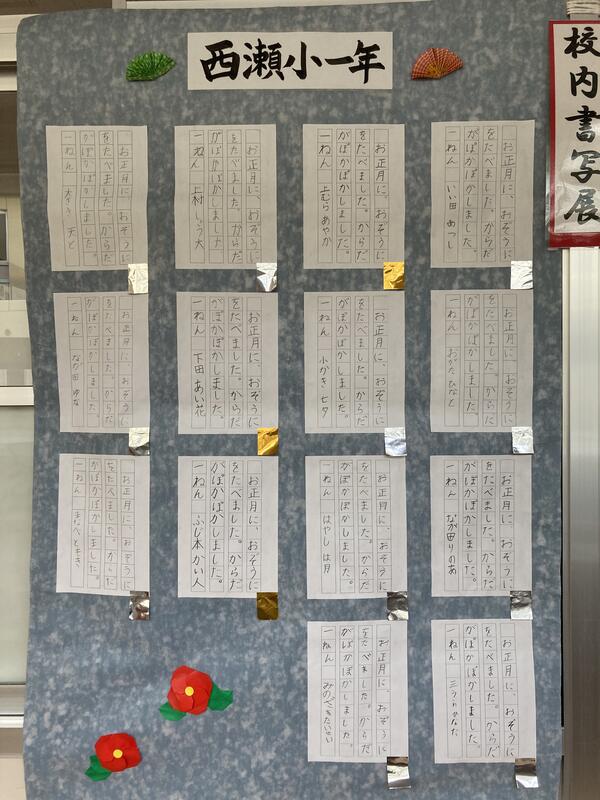 校内書写展
西瀬小一年
お正月に、おぞうに
をたべました。からだ
がぽかぽかしました。
一ねん いい田 あつし
お正月に、おぞうに
をたべました。からだ
がぽかぽかしました。
一ねん 上むら あやか
お正月に、おぞうに
をたべました。からだ
がぽかぽかしました
一ねん 上村 しょう大
お正月に、おぞうに
をたべました。からだ
がぽかぽかしました。
一ねん
お正月に、おぞうに
をたべました。からだ
がぽかぽかしました。
一ねん おがた ひなと
お正月に、おぞうに
をたべました。からだ
がぽかぽかしました。
一ねん 小がき 七夕
お正月に、おぞうに
をたべました。からだ
がぽかぽかしました。
一ねん 下田 あい花
お正月に、おぞうに
をたべました。からだ
がぽかぽかしました。
一ねん なが田 ゆな
お正月に、おぞうに
をたべました。からだ
がぽかぽかしました。
一ねん なが田 りのあ
お正月に、おぞうに
をたべました。からだ
がぽかぽかしました。
一ねん はやし は月
お正月に、おぞうに
をたべました。からだ
がぽかぽかしました。
一ねん ふじ本 かい人
お正月に、おぞうに
をたべました。からだ
がぽかぽかしました。
一ねん まなべ
お正月に、おぞうに
をたべました。からだ
がぽかぽかしました。
一ねん 三うら かなた
お正月に、おぞうに
をたべました。からだ
がぽかぽかしました。
一ねん みのべ